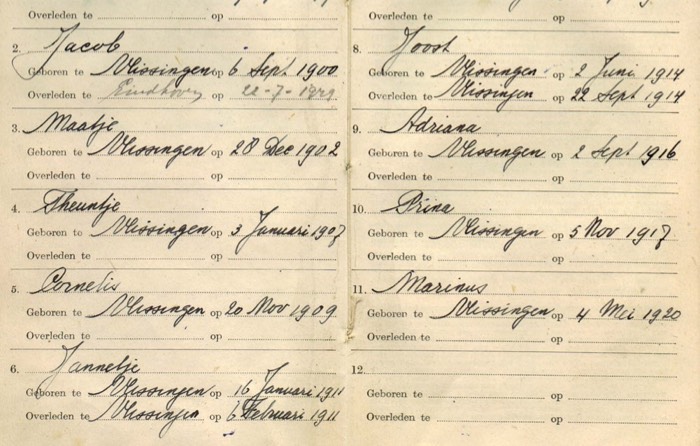 Overleden te op
2. Jacob
Geboren te Vlissingen op 6 Sept 1900
Overleden te Eindhoven op 22-7-
3. Maatje
Geboren te Vlissingen op 28 Dec 1902
Overleden te op
4. Theuntje
Geboren te Vlissingen op 3 Januari 1907
Overleden te op
5. Cornelis
Geboren te Vlissingen op 20 Nov 1909
Overleden te op
6. Jannetje
Geboren te Vlissingen op 16 Januari 1911
Overleden te Vlissingen op 6 Februari 1911
Overleden te op
8. Joost
Geboren te Vlissingen op 2 Juni 1914
Overleden te Vlissingen op 22 Sept 1914
9. Adriana
Geboren te Vlissingen op 2 Sept 1916
Overleden te op
10. Prina
Geboren te Vlissingen op 5 Nov 1917
Overleden te op
11. Marinus
Geboren te Vlissingen op 4 Mei 1920
Overleden te op
12.
Geboren te op
Overleden te op